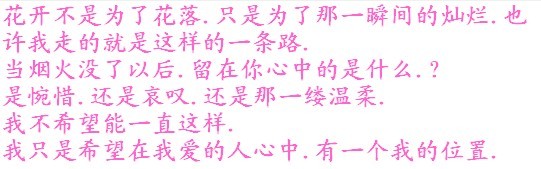 花开不是为了花落.只是为了那一瞬间的灿烂.也
许我走的就是这样的一条路.
当烟火没了以后.留在你心中的是什么.?
是惋惜.还是哀叹.还是那一缕温柔.
我不希望能一直这样.
我只是希望在我爱的人心中.有一个我的位置.